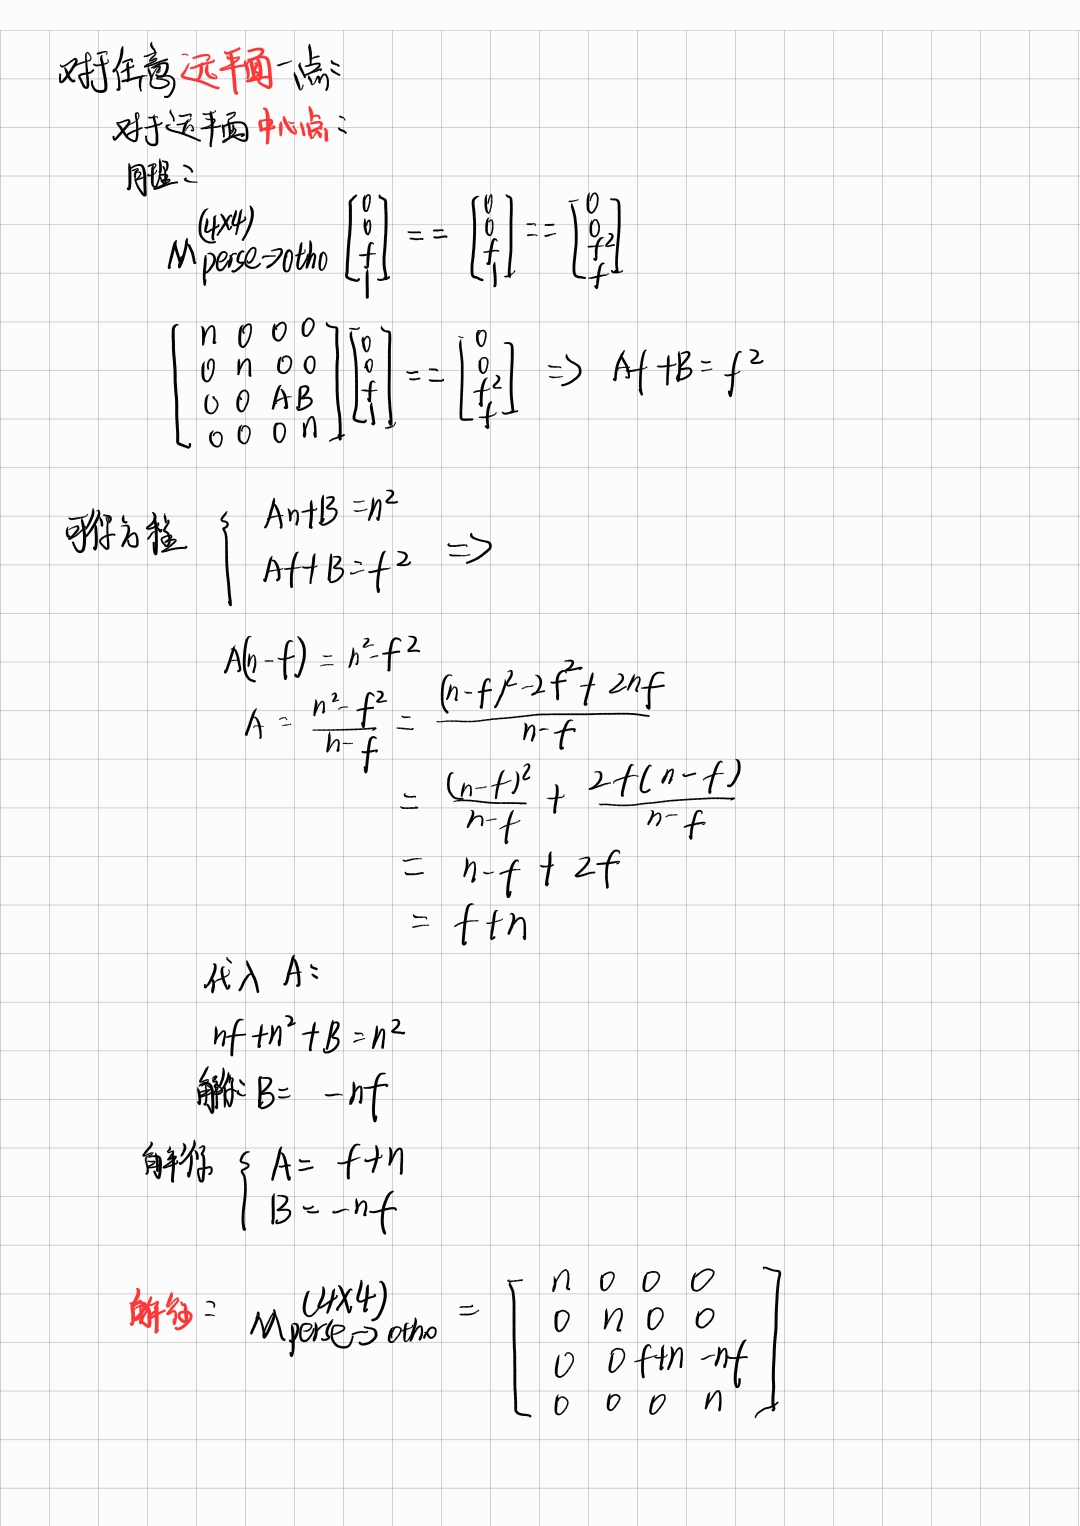 对于任意远平面一点:
对于远平面中心点:
同理:
M_{perse->otho}^{(4×4)} [0 0 f 1] == [0 0 f 1] == [0 0 f² f]
[n 0 0 0; 0 n 0 0; 0 0 A B; 0 0 0 n] [0 0 f 1] == [0 0 f² f] => Af+B=f²
可得方程 { An+B=n²
Af+B=f² =>
A(n-f) = n²-f²
A = (n²-f²)/(n-f) = ((n-f)²-2f²+2nf)/(n-f)
= (n-f)²/(n-f) + 2f(n-f)/(n-f)
= n-f+2f
= f+n
代入 A:
nf+n²+B=n²
解得: B= -nf
解得 { A= f+n
B= -nf
解得: M_{perse->otho}^{(4×4)} = [n 0 0 0; 0 n 0 0; 0 0 f+n -nf; 0 0 0 n]